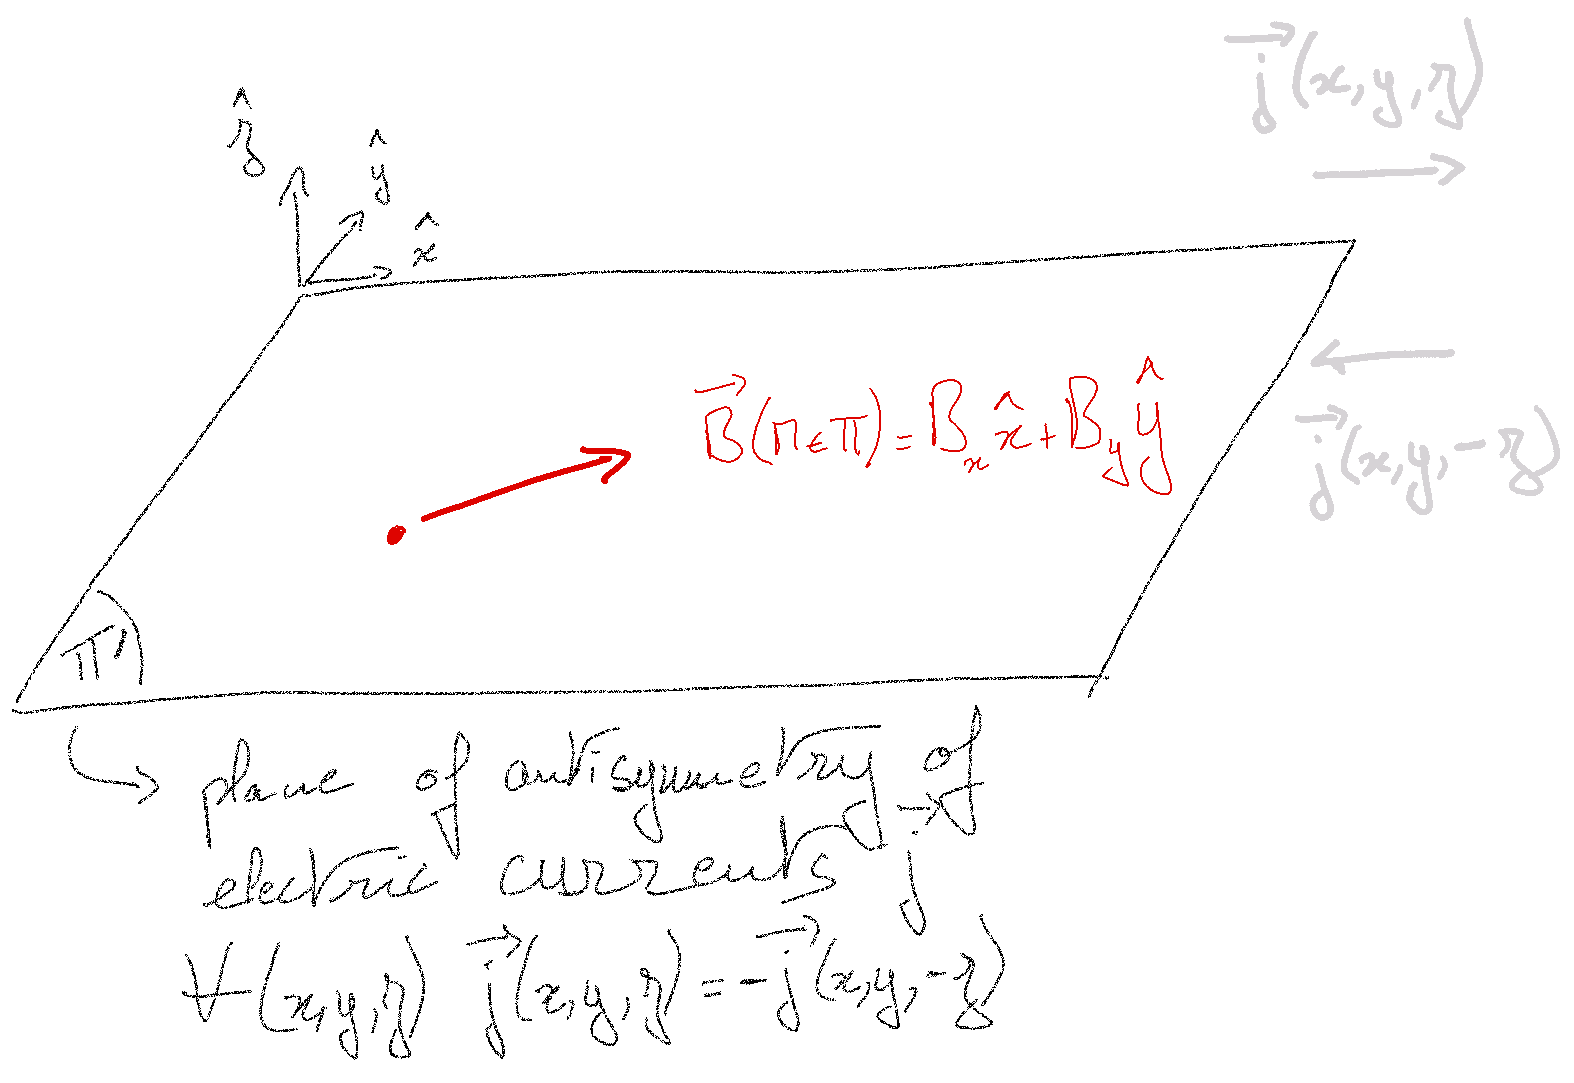 \vec{j}(x,y,z)
\hat{z}
\hat{y}
\hat{x}
\vec{B}(M∈π) = B_x \hat{x} + B_y \hat{y}
\vec{j}(x,y,-z)
π'
↳ plane of antisymmetry of
electric currents \vec{j}
∀(x,y,z) \vec{j}(x,y,z) = -\vec{j}(x,y,-z)